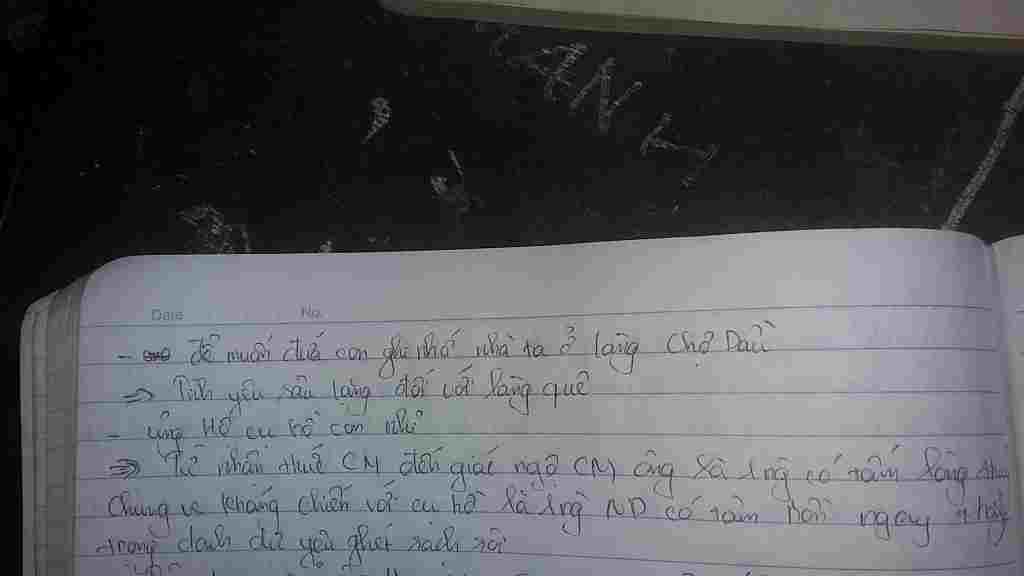 CANT
Date No.
- để muốn đứa con ghi nhớ nhà ta ở làng Chợ Dầu
=> Tình yêu sâu lặng đối với làng quê
- ủng Hộ cụ hồ con nhỉ
=> Từ nhận thức CM đến giác ngộ CM ông là 1 ng có tấm lòng
Chung vs kháng chiến với cụ hồ là 1 ng ND có tâm hồn ngay thẳng
trọng danh dự yêu ghét rách ròi